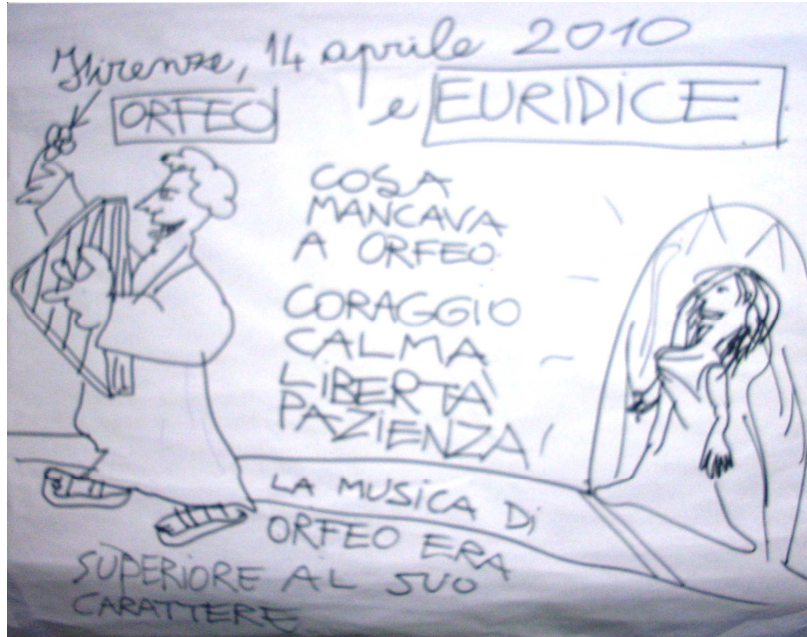 Firenze, 14 aprile 2010
ORFEO e EURIDICE
COSA
MANCAVA
A ORFEO
CORAGGIO
CALMA
LIBERTÀ
PAZIENZA!
LA MUSICA Di
ORFEO ERA
SUPERIORE AL SUO
CARATTERE